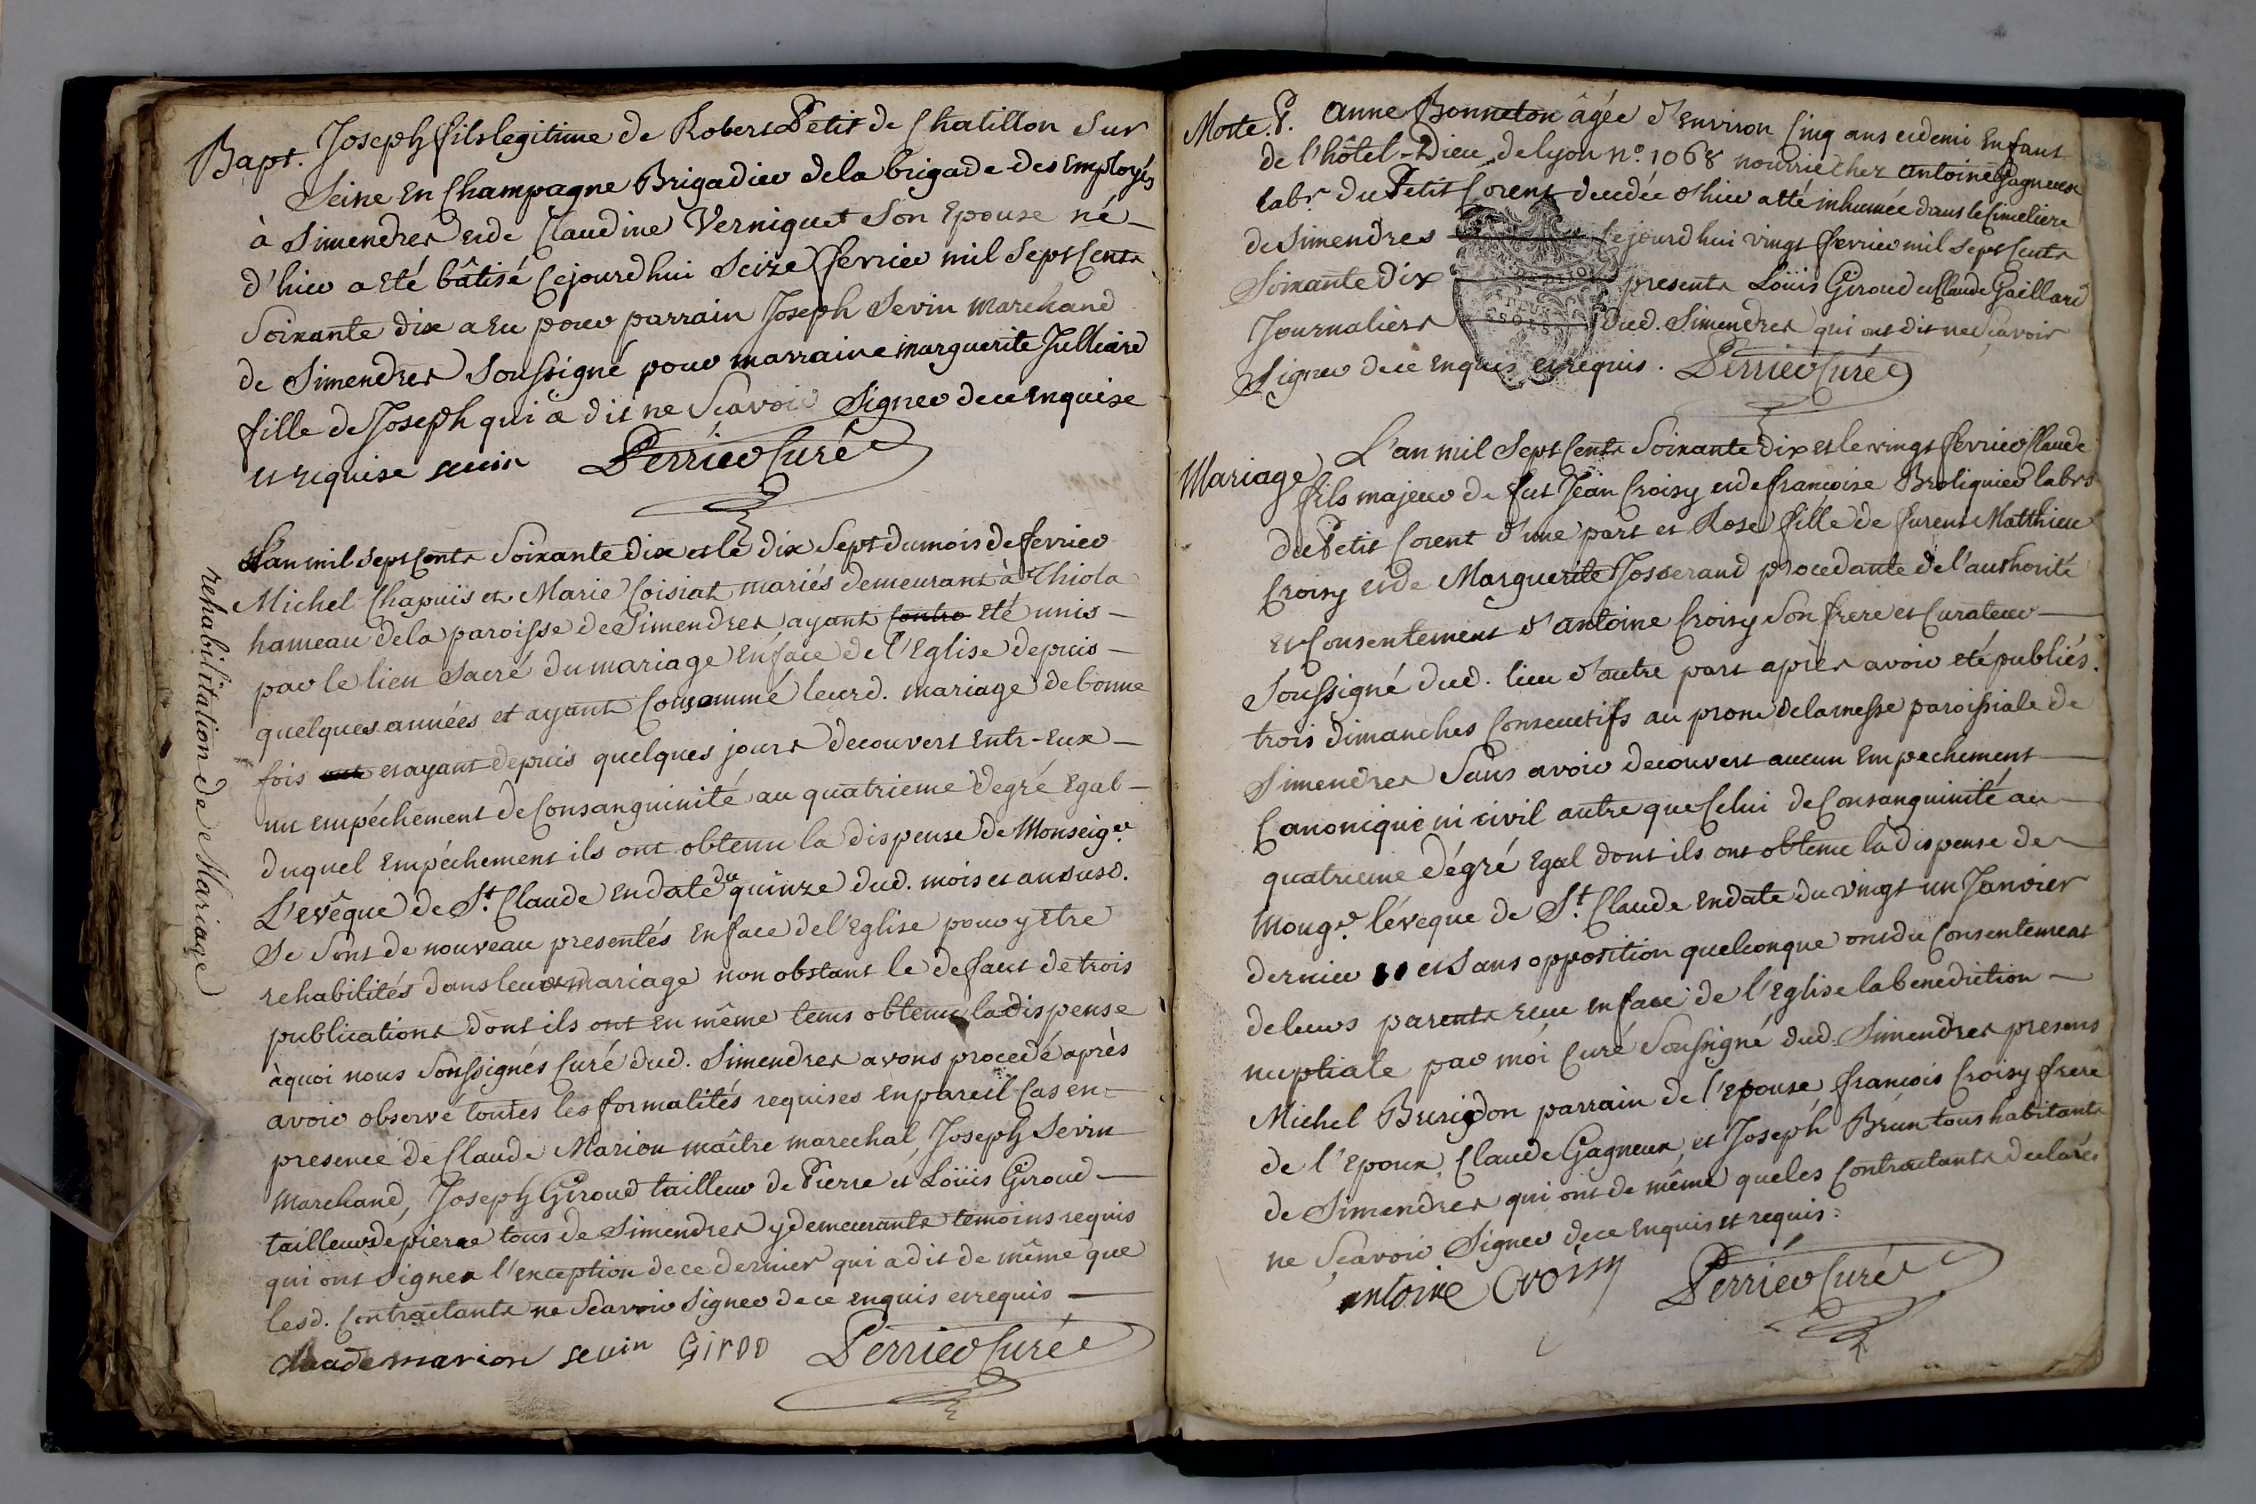 Bapt. Joseph fils legitime de Robert Petit de Chatillon Sur
Seine En Champagne Brigadier de la brigade des Employés
à Simendres et de Claudine Verniquet Son Epouse né
d'hier a Eté bâtisé Cejourdhui Seize fevrier mil Sept Cents
Soixante dix a Eu pour parrain Joseph Sevin marchand
de Simendres Soussigné pour marraine marguerite Julliard
fille de Joseph qui a dit ne Scavoir Signer de ce enquise
et requise sevin Perrier Curé
rehabilitation de Mariage
L'an mil Sept Cents Soixante dix et le dix Sept du mois de fevrier
Michel Chapuis et Marie Coisiat mariés demeurant à Thiola
hameau de la paroisse de Simendres ayant Contro Eté unis
par le lien Sacré du mariage En face de l'Eglise depuis
quelques années et ayant Consommé leurd. mariage de bonne
fois et ayant depuis quelques jours decouvert Entr-Eux
un empéchement de Consanguinité au quatrieme degré Egal
duquel Empéchement ils ont obtenu la dispense de Monseigr.
L'evêque de St. Claude en date du quinze dud. mois et an susd.
Se Sont de nouveau presentés En face de l'Eglise pour y Etre
rehabilités dans leur mariage non obstant le defaut de trois
publications dont ils ont En même tems obtenu la dispense
à quoi nous Soussignés Curé dud. Simendres avons procedé après
avoir observé toutes les formalités requises En pareil Cas en
presence de Claude Marion maître marechal, Joseph Sevin
Marchand, Joseph Giroud tailleur de Pierre et Loüis Giroud
tailleur de pierre tous de Simendres y demeurants temoins requis
qui ont signer l'exception de ce dernier qui a dit de même que
lesd. Contractants ne Scavoir Signer de ce enquis et requis
claude marion sevin Giroo Perrier Curé
Morte. P. Anne Bonneton âgée d'Environ Cinq ans et demi Enfant
de l'hôtel-Dieu de lyon no. 1068 nourrie chez antoine Gagneux
labr. du Petit Corent decedée d'hier a été inhumée dans le Cimetiere
de Simendres Cejourdhui vingt fevrier mil Sept Cents
Soixante Dix presents Loüis Giroud et Claude Gaillard
Journaliers dud. Simendres qui ont dit ne Scavoir
Signer de ce enquis et requis. Perrier Curé
Mariage L'an mil Sept Cents Soixante Dix et le vingt fevrier Claude
fils majeur de fut Jean Croisy et de francoise Broliquier labrs
du Petit Corent d'une part et Rose fille de furent Matthieu
Croisy et de Marguerite Josserand procedante de l'authorité
et Consentement d'antoine Croisy Son frere et Curateur
Soussigné dud. lieu d'autre part aprèr avoir eté publiés
trois Dimanches Consecutifs au prone de la messe paroissiale de
Simendres Sans avoir decouvert aucun Empechement
Canonique ni civil autre que Celui de Consanguinité au
quatrieme dégré Egal dont ils ont obtenu la dispense de
Mongr. lévêque de St. Claude En date du vingt un Janvier
dernier et Sans opposition quelconque ont du Consentement
de leurs parents reçu en face de l'Eglise la benediction
nuptiale par moi Curé Soussigné dud. Simendres presens
Michel Burigdon parrain de l'Epouse, francois Croisy frere
de l'Epoux, Claude Gagneux, et Joseph Brun tous habitants
de Simendres qui ont de même que les Contractants declarés
ne Scavoir Signer de ce enquis et requis.
antoine Croisy Perrier Curé